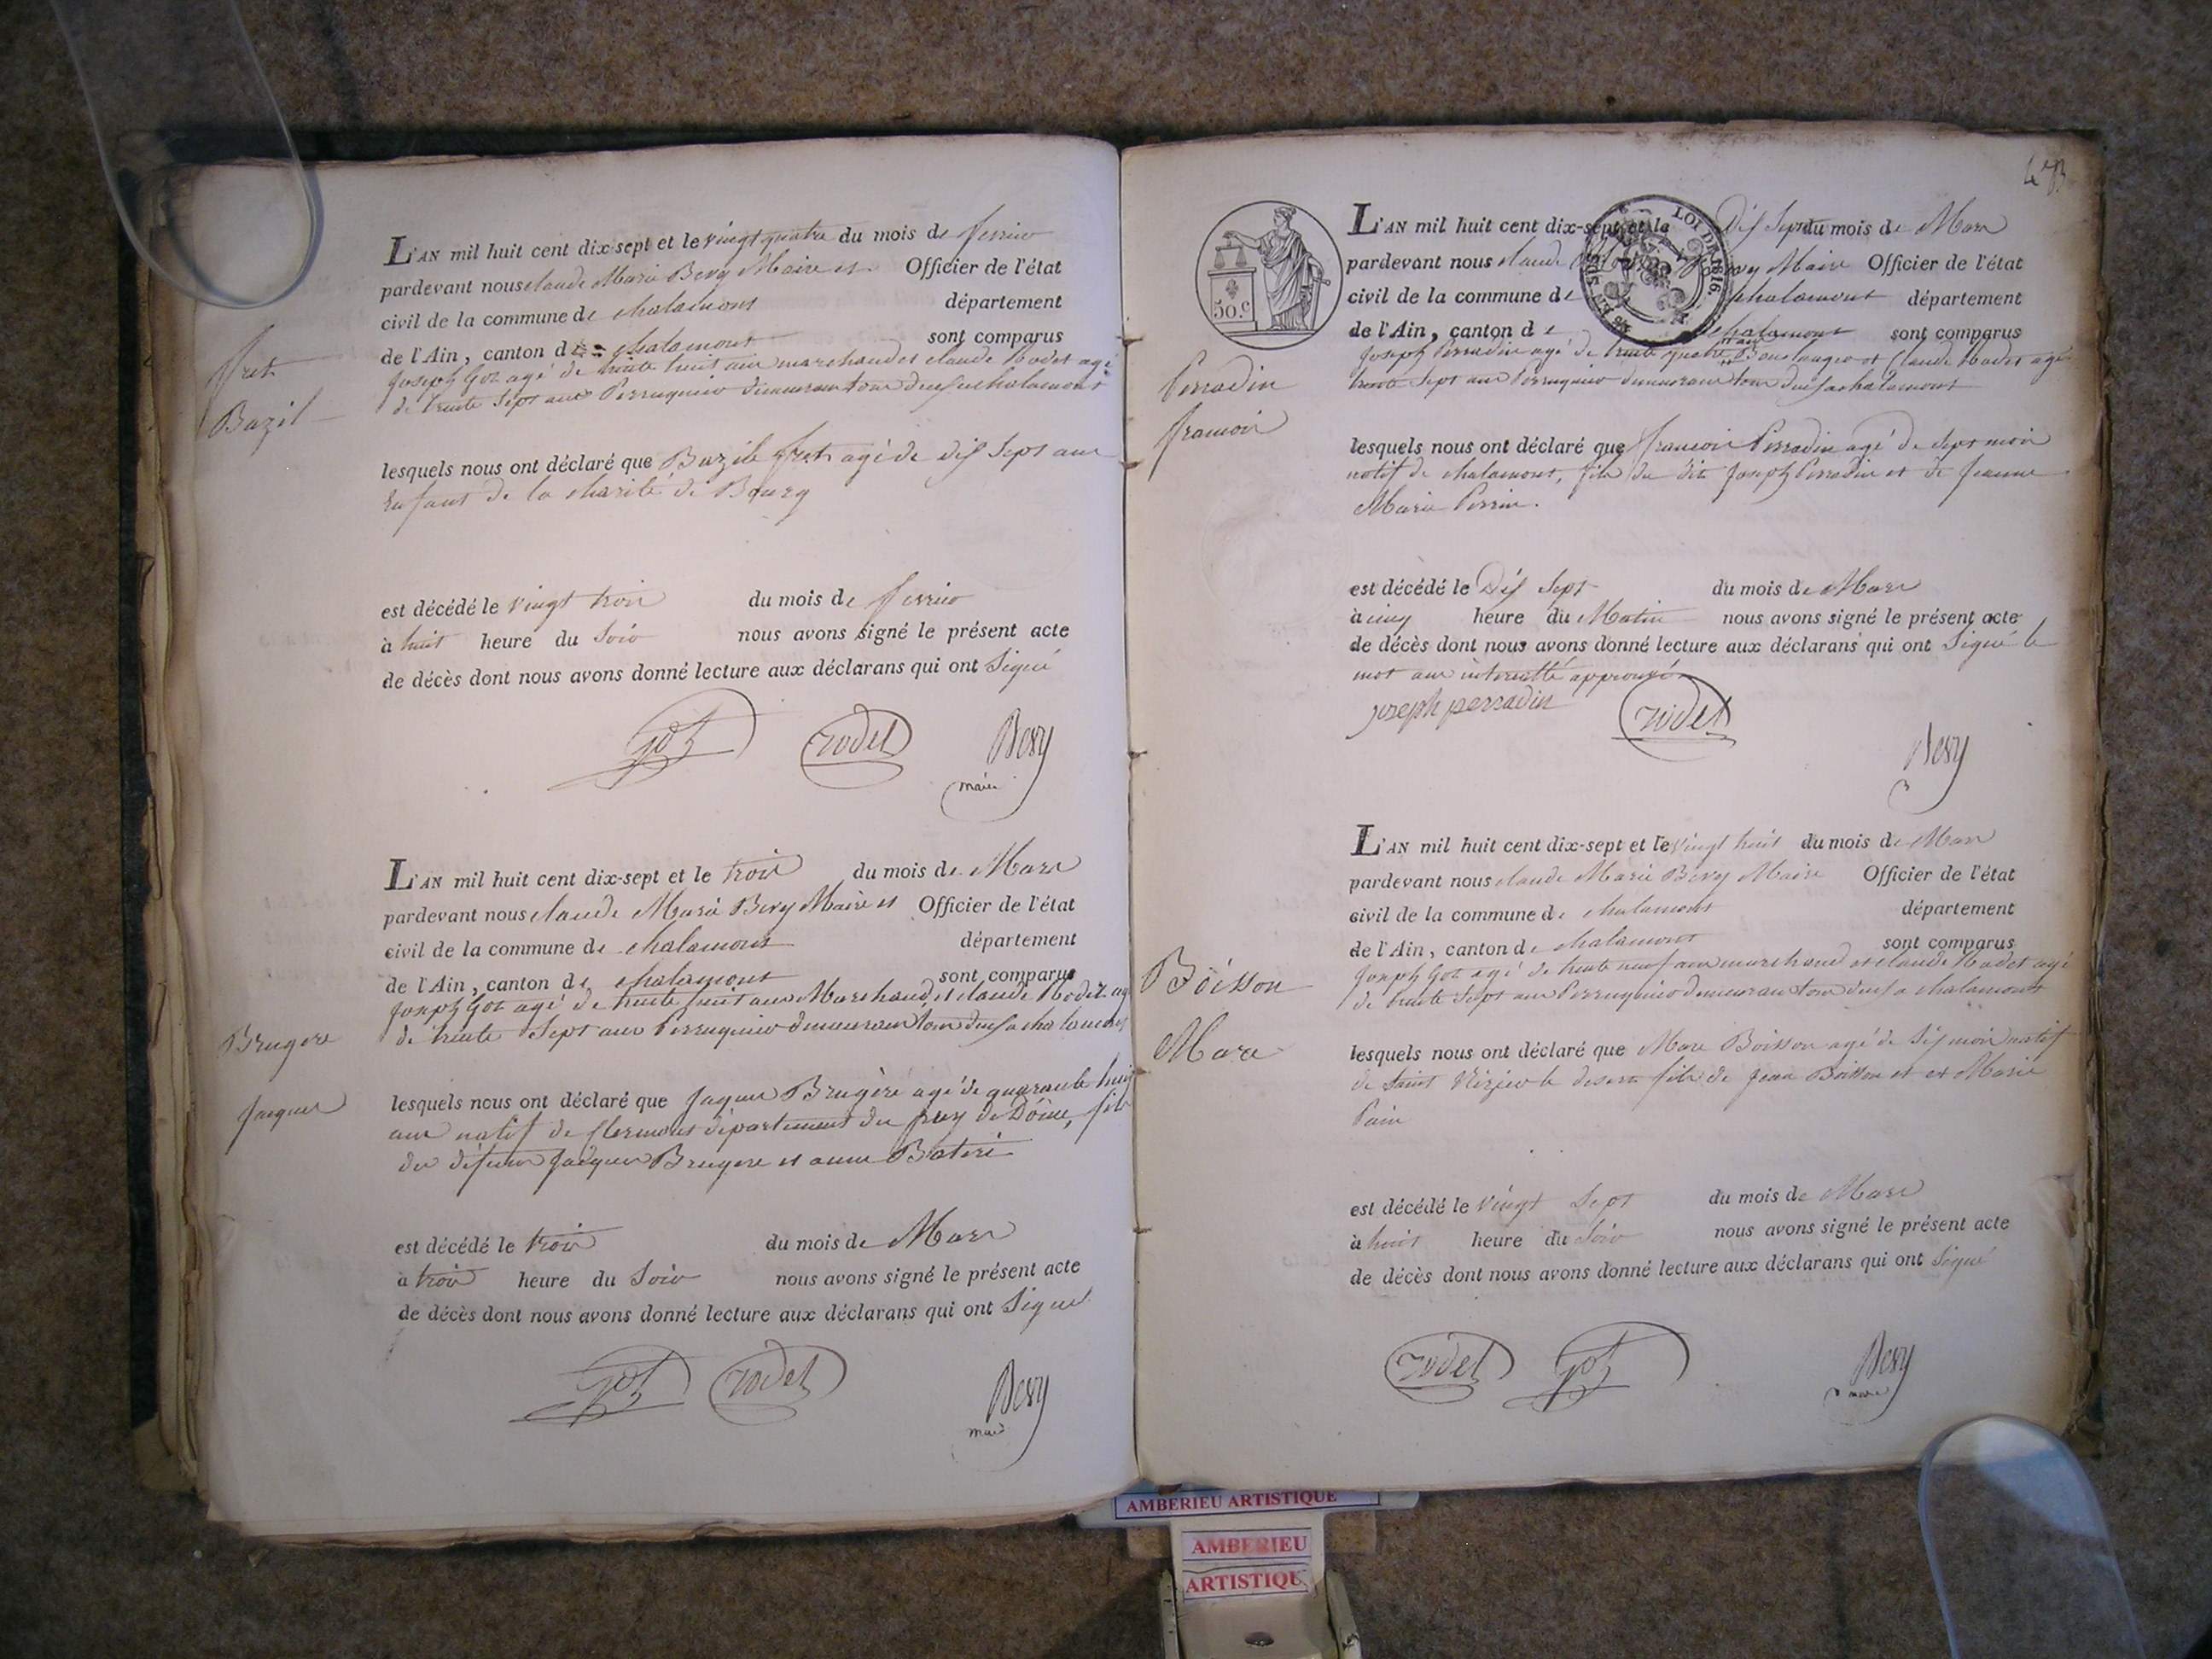 L'AN mil huit cent dix-sept et le vingt quatre du mois de fevrier
pardevant nous claude Marie Bevy Maire et Officier de l'état
civil de la commune de chalamont département
de l'Ain, canton de chalamont sont comparus
joseph Got agé de trente huit ans marchand et claude Rodet agé
de trente sept ans Perruquier demeurant tous deux a chalamont
fret
Bazil
lesquels nous ont déclaré que Bazile fret agé de dix sept ans
Enfant de la charité de Bourg
est décédé le vingt trois du mois de fevrier
à huit heure du soir nous avons signé le présent acte
de décès dont nous avons donné lecture aux déclarans qui ont signé
got rodet Bevy
maire
L'AN mil huit cent dix-sept et le trois du mois de Mars
pardevant nous claude Marie Bevy Maire et Officier de l'état
civil de la commune de chalamont département
de l'Ain, canton de chalamont sont comparus
joseph Got agé de trente huit ans Marchand et claude Rodet agé
de trente sept ans Perruquier demeurant tous deux a chalamont
Brugere
jacques
lesquels nous ont déclaré que jaques Brugère agé de quarante huit
ans natif de clermont département du puy de Dôme, fils
du défunt jacques Brugere et anne
est décédé le trois du mois de Mars
à trois heure du soir nous avons signé le présent acte
de décès dont nous avons donné lecture aux déclarans qui ont signé
got rodet Bevy
maire
50.c
LOI DE 1816.
L'AN mil huit cent dix-sept et le Dix sept du mois de Mars
pardevant nous claude Bevy Maire Officier de l'état
civil de la commune de chalamont département
de l'Ain, canton de chalamont sont comparus
joseph Perradin agé de trente quatre ans Boulanger et Claude Rodet agé
trente sept ans Perruquier demeurant tous deux a chalamont
Perradin
francois
lesquels nous ont déclaré que francois Perradin agé de sept mois
natif de chalamont, fils du dit joseph Perradin et de jeanne
Marie Perrin.
est décédé le Dix sept du mois de Mars
à cinq heure du Matin nous avons signé le présent acte
de décès dont nous avons donné lecture aux déclarans qui ont signé le
mot ans interställé approuvé
joseph perradin rodet
Bevy
L'AN mil huit cent dix-sept et le vingt huit du mois de Mars
pardevant nous claude Marie Bevy Maire Officier de l'état
civil de la commune de chalamont département
de l'Ain, canton de chalamont sont comparus
joseph Got agé de trente neuf ans marchand et claude Rodet agé
de trente sept ans Perruquier demeurant tous deux a chalamont
Boisson
Marc
lesquels nous ont déclaré que Marc Boisson agé de dix mois natif
de saint Nizier le desert fils de jean Boisson et et Marie
est décédé le vingt sept du mois de Mars
à huit heure du soir nous avons signé le présent acte
de décès dont nous avons donné lecture aux déclarans qui ont signé
rodet got Bevy
maire
AMBERIEU ARTISTIQUE
AMBERIEU
ARTISTIQU